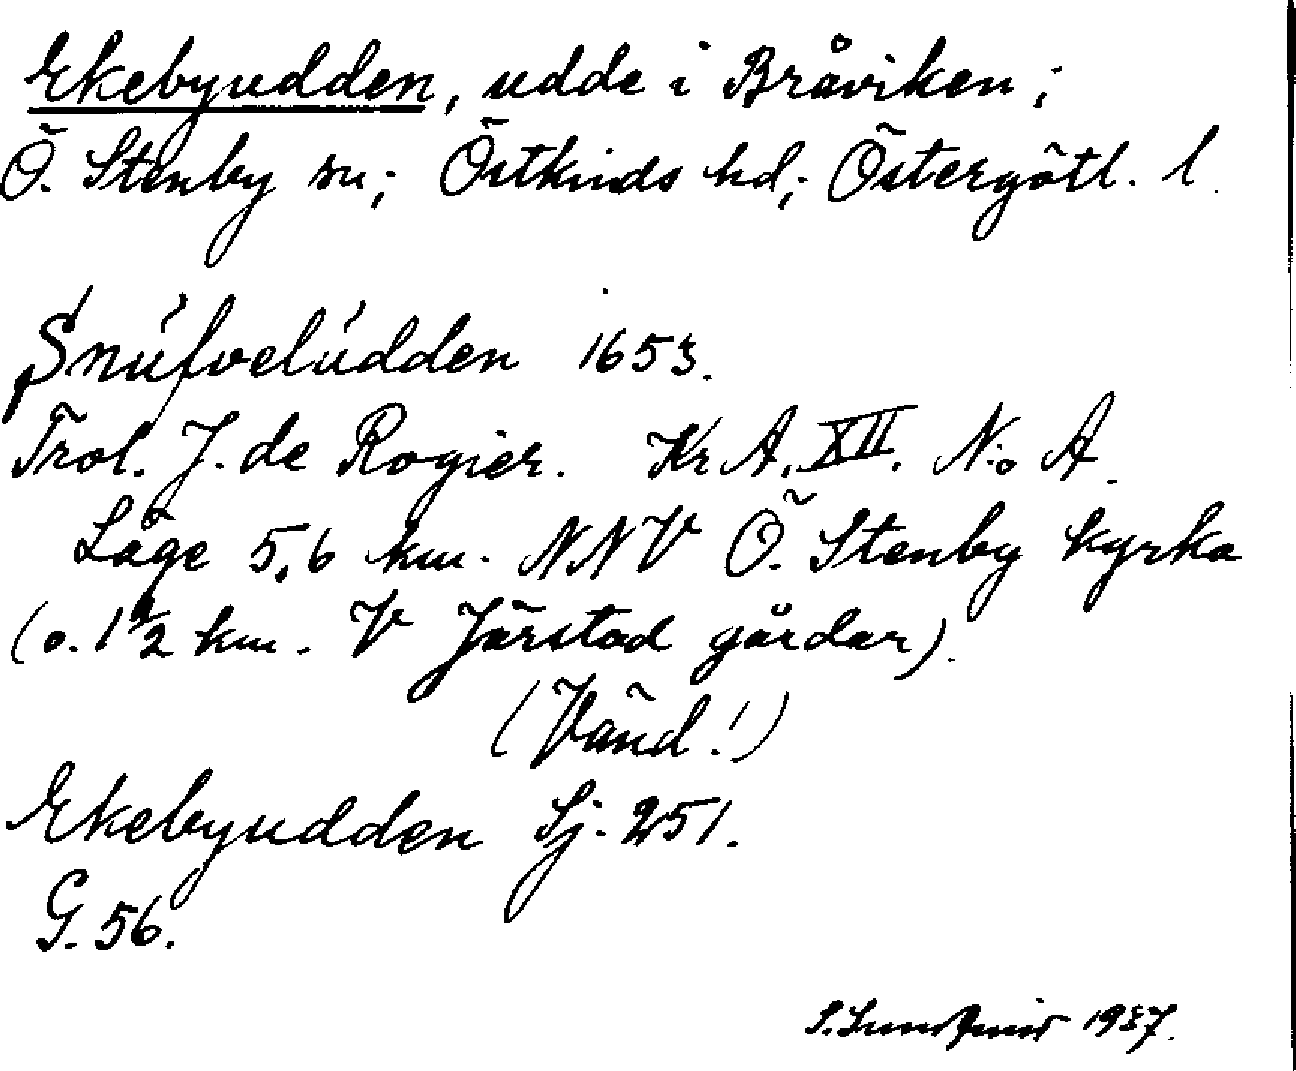 Ekebyudden, udde i Bråviken;
Ö. Stenby sn; Östkinds hd; Östergötl. l.
Snúfvelúdden 1653.
Trol. J. de Rogier. Kr A. XII. N:o A.
Läge 5,6 km. NNV Ö. Stenby kyrka
(o. 1 1/2 km. V Järstad gårdar).
(Vänd!)
Ekebyudden Sj. 251.
G. 56.
1937.